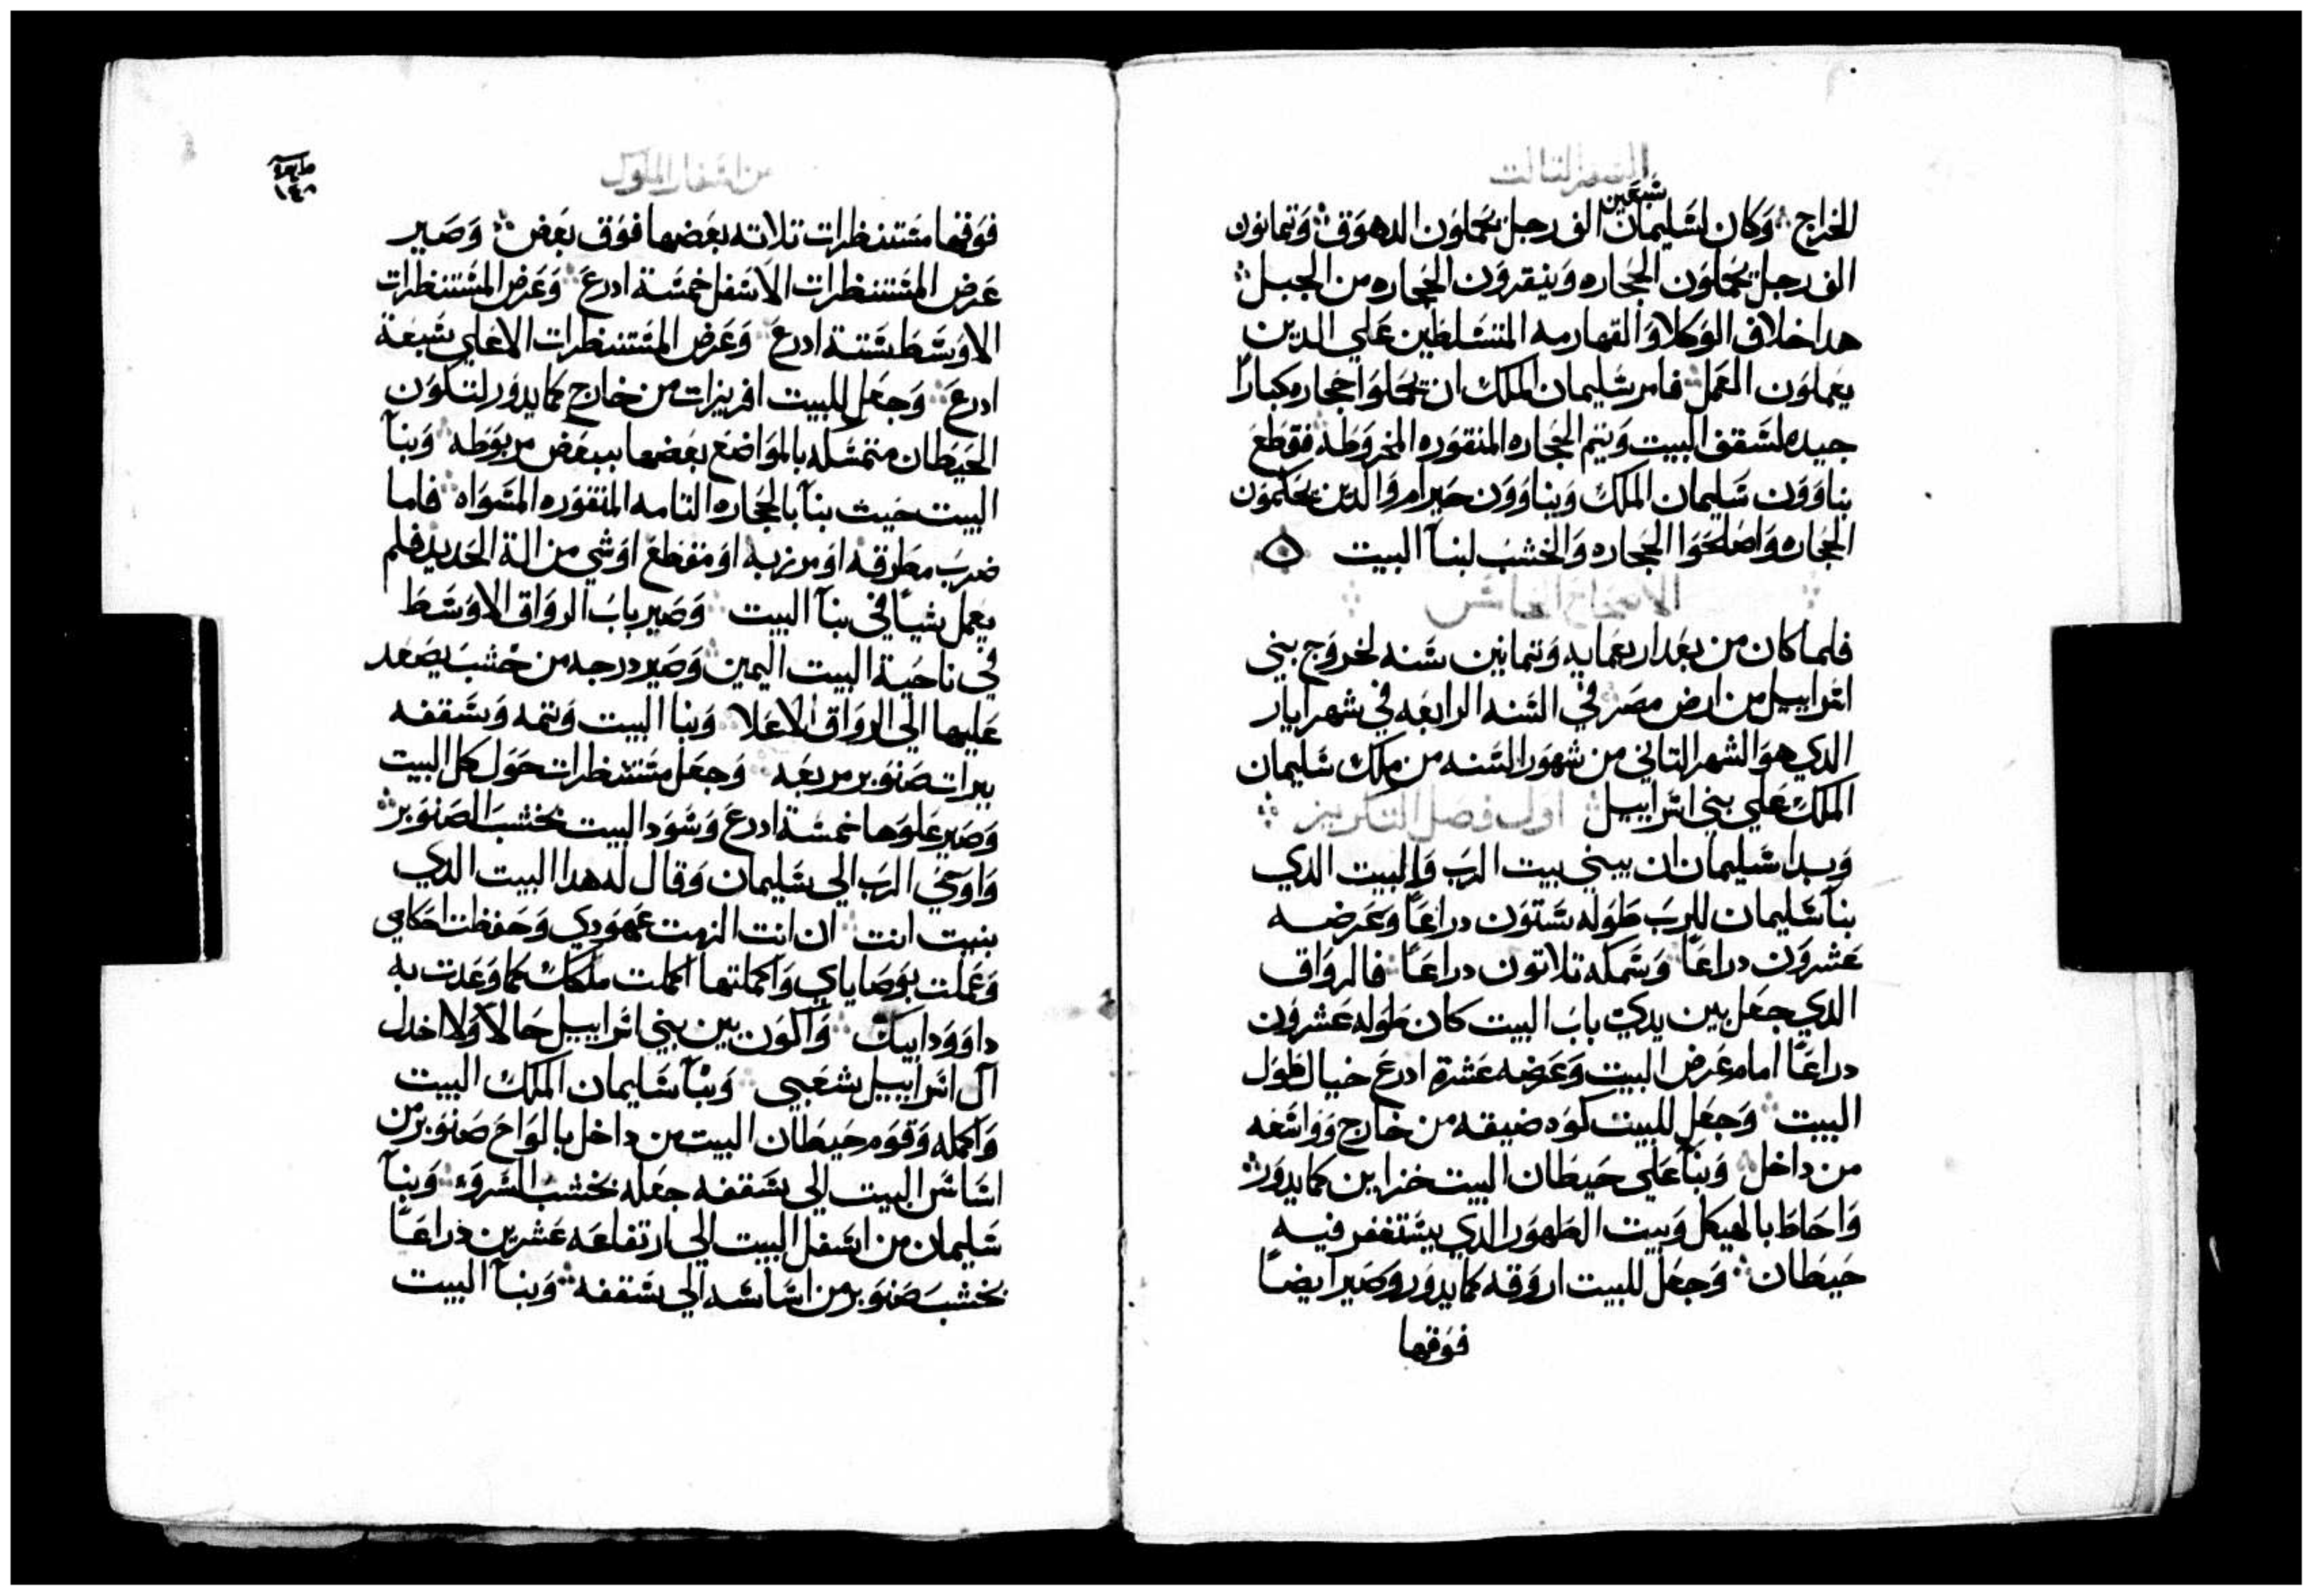 السفر التالت
الخراج وَكان لسَليمان سَبعين الف رجل يحَملوَن الدهوَق وَتمانون
الف رجل يحَملوَن الحجاره وَينقروَن الحجاره من الجبل
هدا خلاف الوَكلا وَالقهارمه المتسَلطين عَلي الدين
يعَملوَن العَمل فامر سَليمان الملك ان يحَملوَا حجاره كباراً
جيده لسَقف البيت وَيتم الحجاره المنقوَره المخروَطه فقطعَ
بناوَوَن سَليمان الملك وَبناوَوَن حيرام وَالدين يحكموَن
الحجاره وَاصلحَوَا الحجاره وَالخشب لبنآ البيت
الاصحاح الخامس
فلما كان من بعَد اربعمايه وَتمانين سَنه لخروَج بني
اسَراييل من ارض مصر في السَنه الرابعَه في شهر ايار
الدي هوَ الشهر التاني من شهوَر السَنه من ملك سَليمان
الملك عَلي بني اسَراييل اول فصل التكريز
وَبدا سَليمان ان يبني بيت الربَ وَالبيت الدي
بنآ سَليمان للربَ طوَله سَتوَن دراعَاً وَعَرضه
عَشروَن دراعَاً وَسَمكه تلاتون دراعَاً فالروَاق
الدي جعَل بين يدي بابَ البيت كان طوَله عَشروَن
دراعَاً امام عَرض البيت وَعَرضه عَشرة ادرعَ حيال طوَل
البيت وَجعَل للبيت كوَه ضيقه من خارج وَوَاسَعَه
من داخل وَبنآ عَلي حَيطان البيت خزاين كما يدوَر
وَاحَاط بالهيكل وَبيت الطهوَر الدي يسَتغفر فيه
حَيطان وَجعَل للبيت اروَقه كما يدوَر وَصَير ايضاً
فوَقها
من اسَفار الملوَك
١٤٨
فوَقها مسَتنظرات تلاته بعَضها فوَق بعَض وَصَير
عَرض المسَتنظرات الاسَفل خمسَة ادرعَ وَعَرض المسَتنظرات
الاوَسَط سَتة ادرعَ وَعَرض المسَتنظرات الاعَلي سَبعَة
ادرعَ وَجعَل للبيت افريزات من خارج كما يدوَر لتكوَن
الحَيطان متمسَكه بالموَاضعَ بعَضها ببعَض مربوَطه وَبنآ
البيت حَيث بنآ بالحجاره التامه المنقوَره المسَوَاه فاما
ضربَ مطرقه اوَ مرزبه اوَ مقطعَ اوَ شي من الة الحَديد فلم
يعَمل شياً في بنآ البيت وَصَير بابَ الروَاق الاوَسَط
في ناحَية البيت اليمين وَصَير درجه من خشبَ يصَعَد
عَليها الي الروَاق الاعَلا وَبنا البيت وَتمه وَسَقفه
بيرات صَنوَبر مربعَه وَجعَل مسَتنظرات حَوَل كل البيت
وَصَير عَلوَها خمسَة ادرعَ وَسَوَد البيت بخشبَ الصَنوَبر
وَاوَحَي الربَ الي سَليمان وَقال له هدا البيت الدي
بنيت انت ان انت الزمت عَهوَدي وَحَفظت احَكامي
وَعَملت بوَصَاياي وَاكملتها اكملت ملكك كما وَعَدت به
داوَوَد ابيك وَاكوَن بين بني اسَراييل حَالاً وَلا اخدل
آل اسَراييل شعَبي وَبنآ سَليمان الملك البيت
وَاكمله وَقوَم حَيطان البيت من داخل بالوَاحَ صَنوَبر من
اسَاسَ البيت الي سَقفه جعَله بخشبَ السَروَ وَبنآ
سَليمان من اسَفل البيت الي ارتفاعَه عَشرين ذراعَاً
بخشبَ صَنوَبر من اسَاسَه الي سَقفه وَبنآ البيت